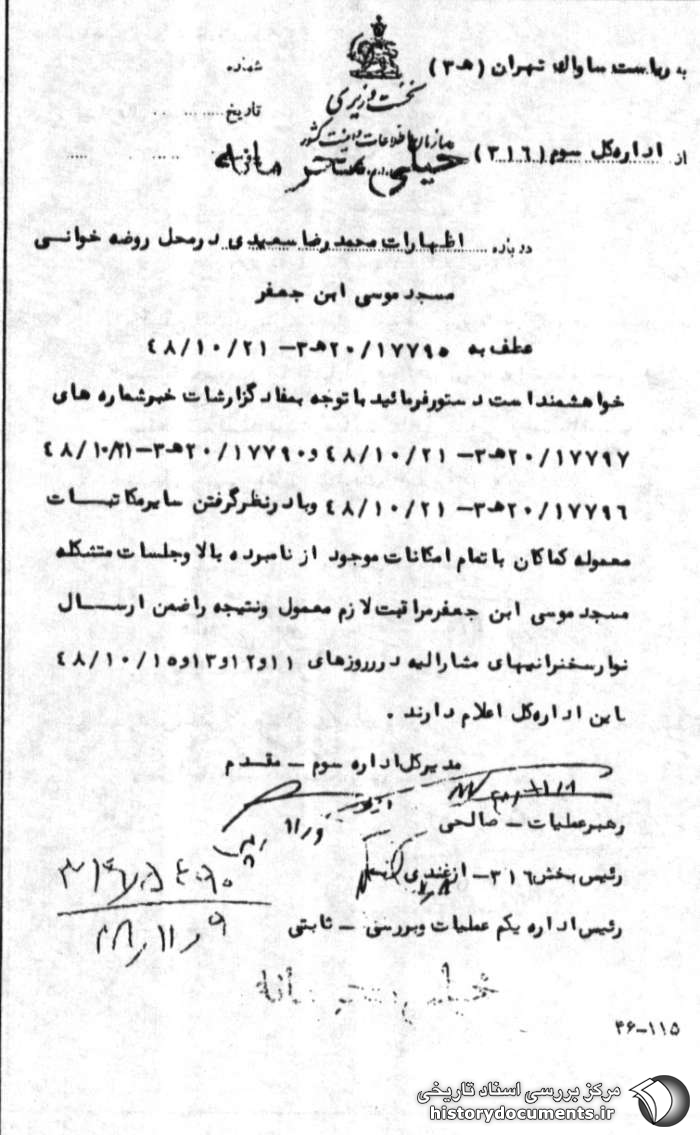 به ریاست ساواک تهران (ه‍ ۳)
شماره
نخست وزیری
تاریخ
سازمان اطلاعات و امنیت کشور
از اداره کل سوم (۳۱۶)
خیلی محرمانه
درباره اظهارات محمد رضا سعیدی در محل روضه خوانی
مسجد موسی ابن جعفر
عطف به ۲۰/۱۷۷۹۵ه‍ ۳ – ۴۸/۱۰/۲۱
خواهشمند است دستور فرمائید با توجه بمفاد گزارشات خبر شماره های
۲۰/۱۷۷۹۷ه‍ ۳ – ۴۸/۱۰/۲۱ و ۲۰/۱۷۷۹۰ه‍ ۳ – ۴۸/۱۰/۲۱
۲۰/۱۷۷۹۶ه‍ ۳ – ۴۸/۱۰/۲۱ و با در نظر گرفتن سایر مکاتبات
معموله کماکان با تمام امکانات موجود از نامبرده بالا و جلسات متشکله
مسجد موسی ابن جعفر مراقبت لازم معمول و نتیجه را ضمن ارسال
نوار سخنرانیهای مشارالیه در روزهای ۱۱و۱۲و۱۳و۴۸/۱۰/۱۵
باین اداره کل اعلام دارند .
مدیر کل اداره سوم – مقدم
رهبر عملیات – صالحی
رئیس بخش ۳۱۶ – ازغندی
رئیس اداره یکم عملیات و بررسی – ثابتی
۴۸/۱۱/۹
خیلی محرمانه
۴۶–۱۱۵
مرکز بررسی اسناد تاریخی
historydocuments.ir